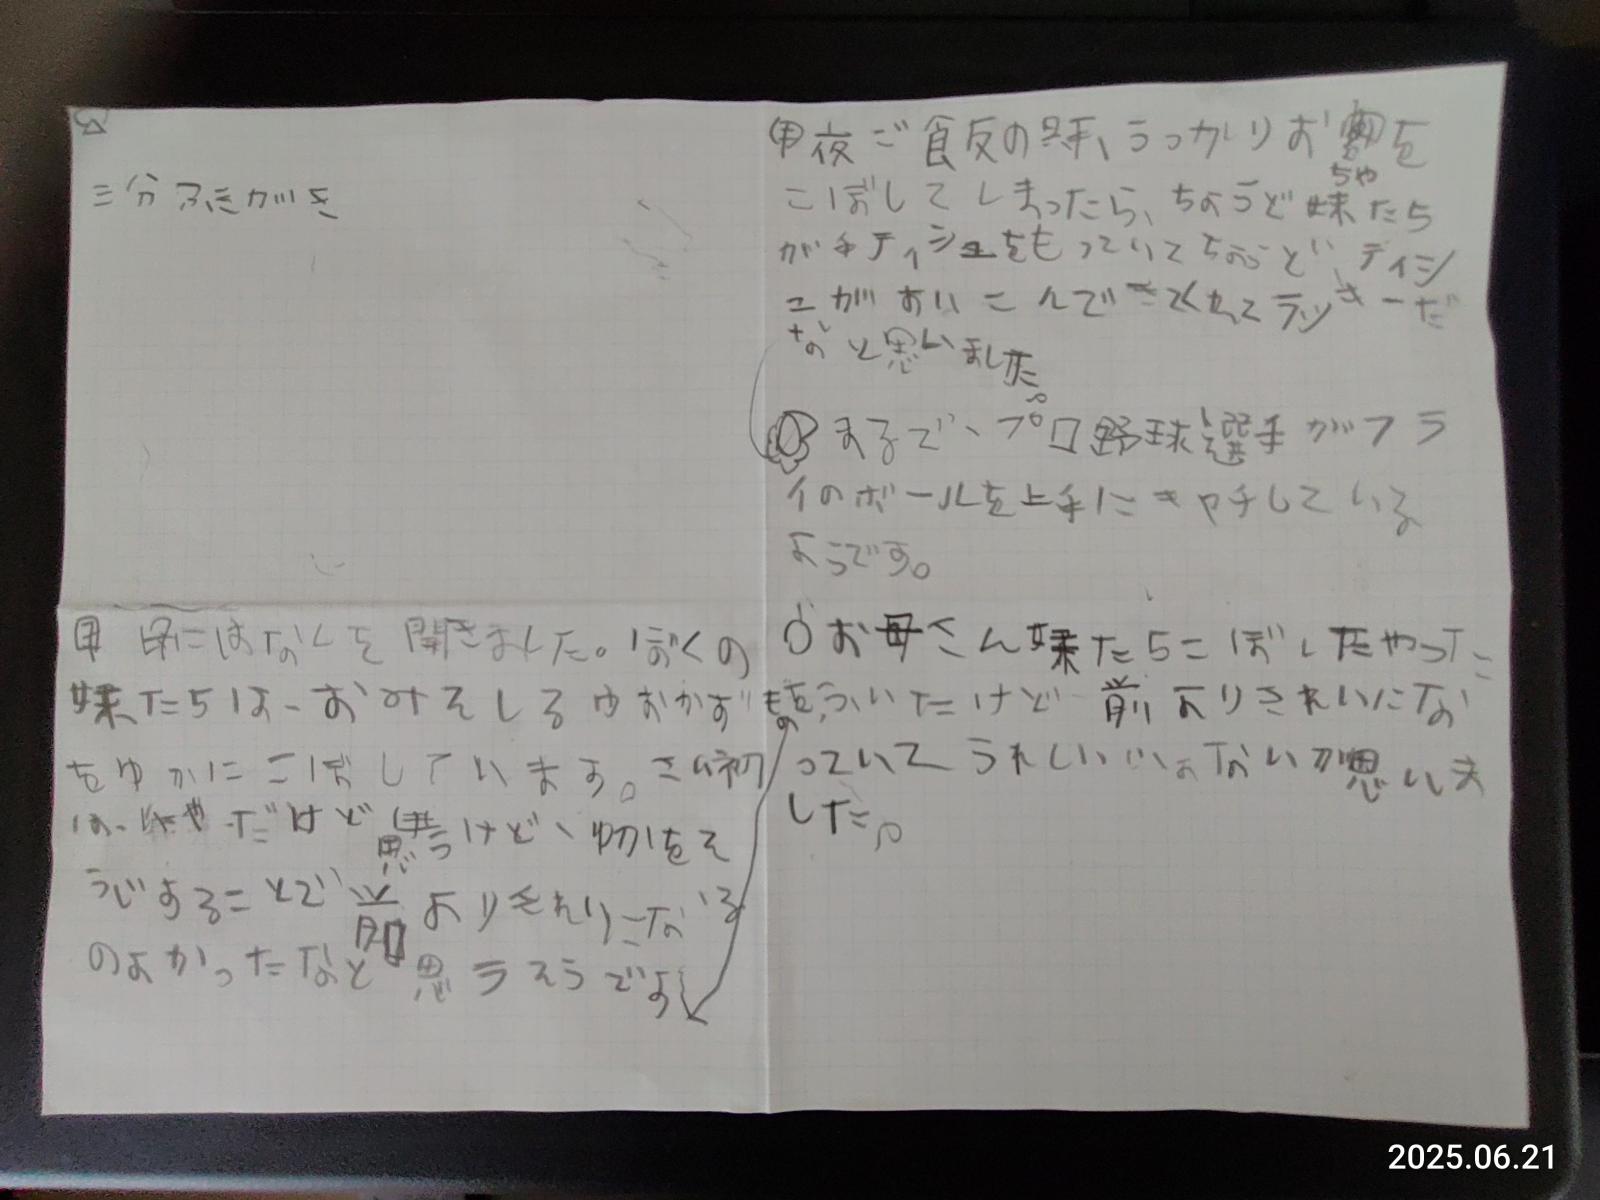 三分ふきがき
㊥夜ご食反の時、うっかりお
ちゃ
を
こぼしてしまったら、ちょうど妹たち
がティシュをもっていてちょうど、ティシ
ュがすいこんできてくれてラッキーだ
なと思いました。
まるで、プロ野球選手がフラ
イのボールを上手にキャチしている
ようです。
お母さん妹たちこぼしたやった
ふいたけど前よりきれいにな
っていてうれしいじゃないか思いま
した。
母にはなしを聞きました。ぼくの
妹たちは、おみそしるやおかずもの
をゆかにこぼしています。さい初
は、いやだけど思うけど、物をそ
うじすることで前よりきれいになる
のよかったなと思うそうです
2025.06.21